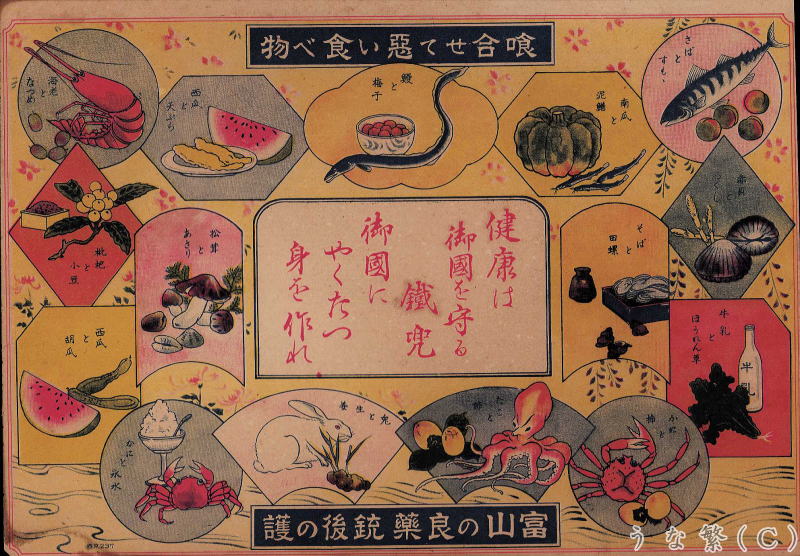 喰合せて惡い食べ物
さばと
すもゝ
南瓜
と
泥鰌
鰻
と
梅子
西瓜
と
天ぷら
海老
と
なつめ
枇杷
と
小豆
松茸
と
あさり
そば
と
田螺
牛乳
と
ほうれん草
牛乳
健康は
御國を守る
鐵兜
御國に
やくだつ
身を作れ
西瓜
と
胡瓜
かに
と
柿
たこ
と
柿
かにと
氷水
富山の良藥銃後の護
うな繁(C)